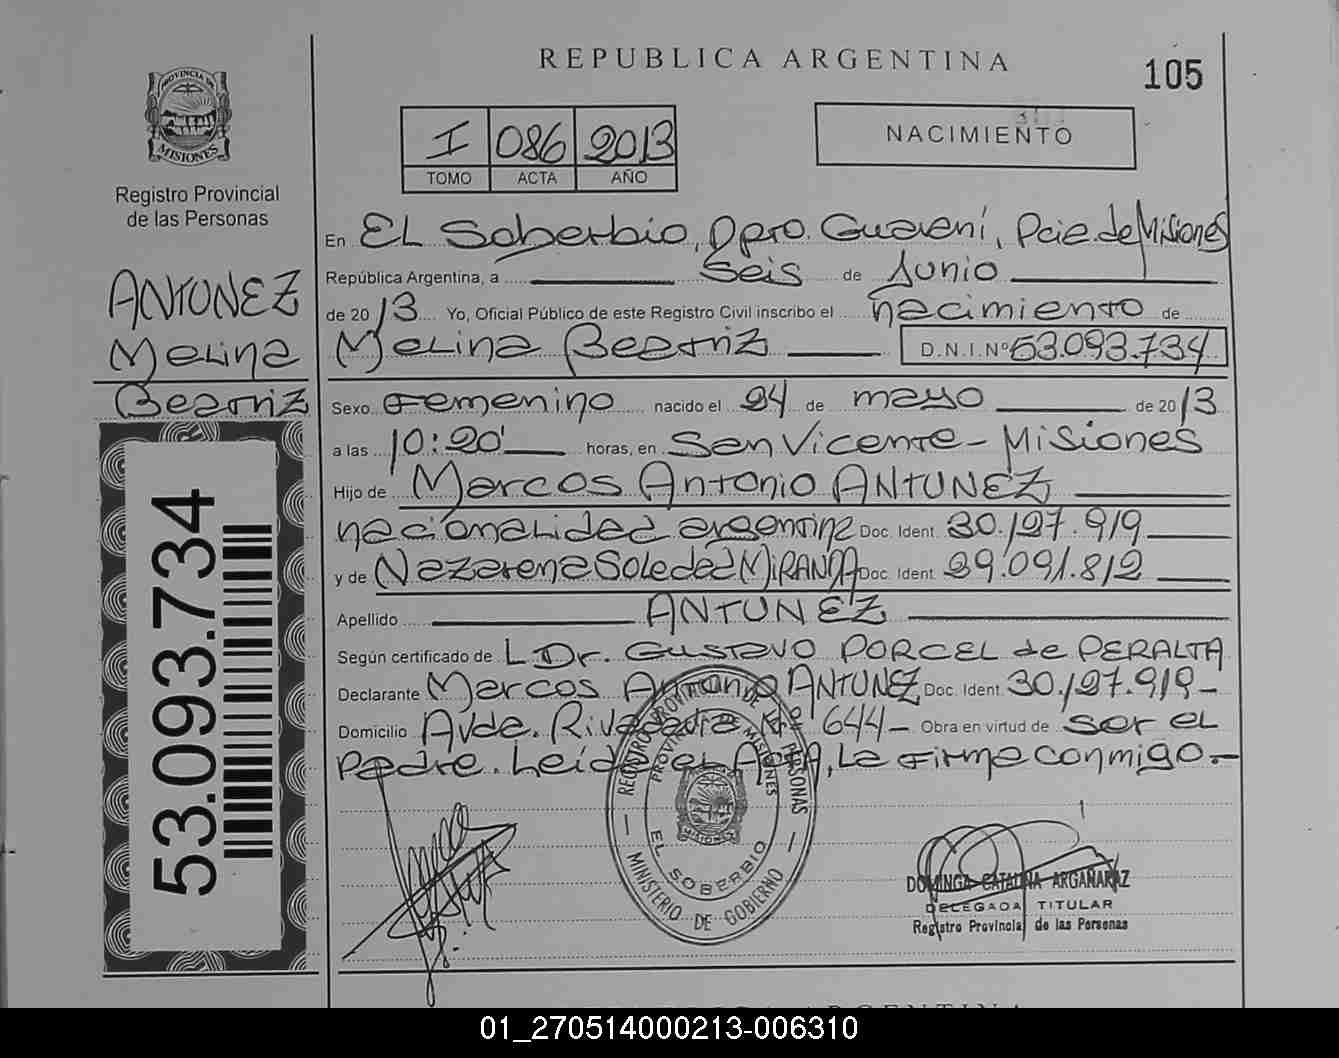 REPUBLICA ARGENTINA
105
PROVINCIA DE
MISIONES
Registro Provincial
de las Personas
I 086 2013
TOMO ACTA AÑO
NACIMIENTO
ANTUNEZ
Melina
Beatriz
53.093.734
En El Soberbio, Dpto. Guaraní, Pcia. de Misiones
República Argentina, a seis de Junio
de 2013 Yo, Oficial Público de este Registro Civil inscribo el nacimiento de
Melina Beatriz D.N.I.Nº 53.093.734
Sexo Femenino nacido el 24 de mayo de 2013
a las 10:20' horas, en San Vicente - Misiones
Hijo de Marcos Antonio ANTUNEZ
nacionalidad argentina Doc. Ident. 30.127.919
y de Nazarena Soledad MIRANDA Doc. Ident. 29.091.812
Apellido ANTUNEZ
Según certificado de L Dr. Gustavo PORCEL de PERALTA
Declarante Marcos Antonio ANTUNEZ Doc. Ident. 30.127.919-
Domicilio Avda. Rivadavia Nº 644- Obra en virtud de ser el
Padre. Leída el Acta, La firma conmigo.-
REGISTRO PROVINCIAL DE LAS PERSONAS
PROVINCIA DE MISIONES
EL SOBERBIO
MINISTERIO DE GOBIERNO
DOMINGA CATALINA ARGAÑARAZ
DELEGADA TITULAR
Registro Provincial de las Personas
01_270514000213-006310